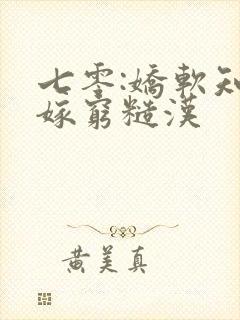 七零:嬌軟知
嫁窮糙漢
黃美真